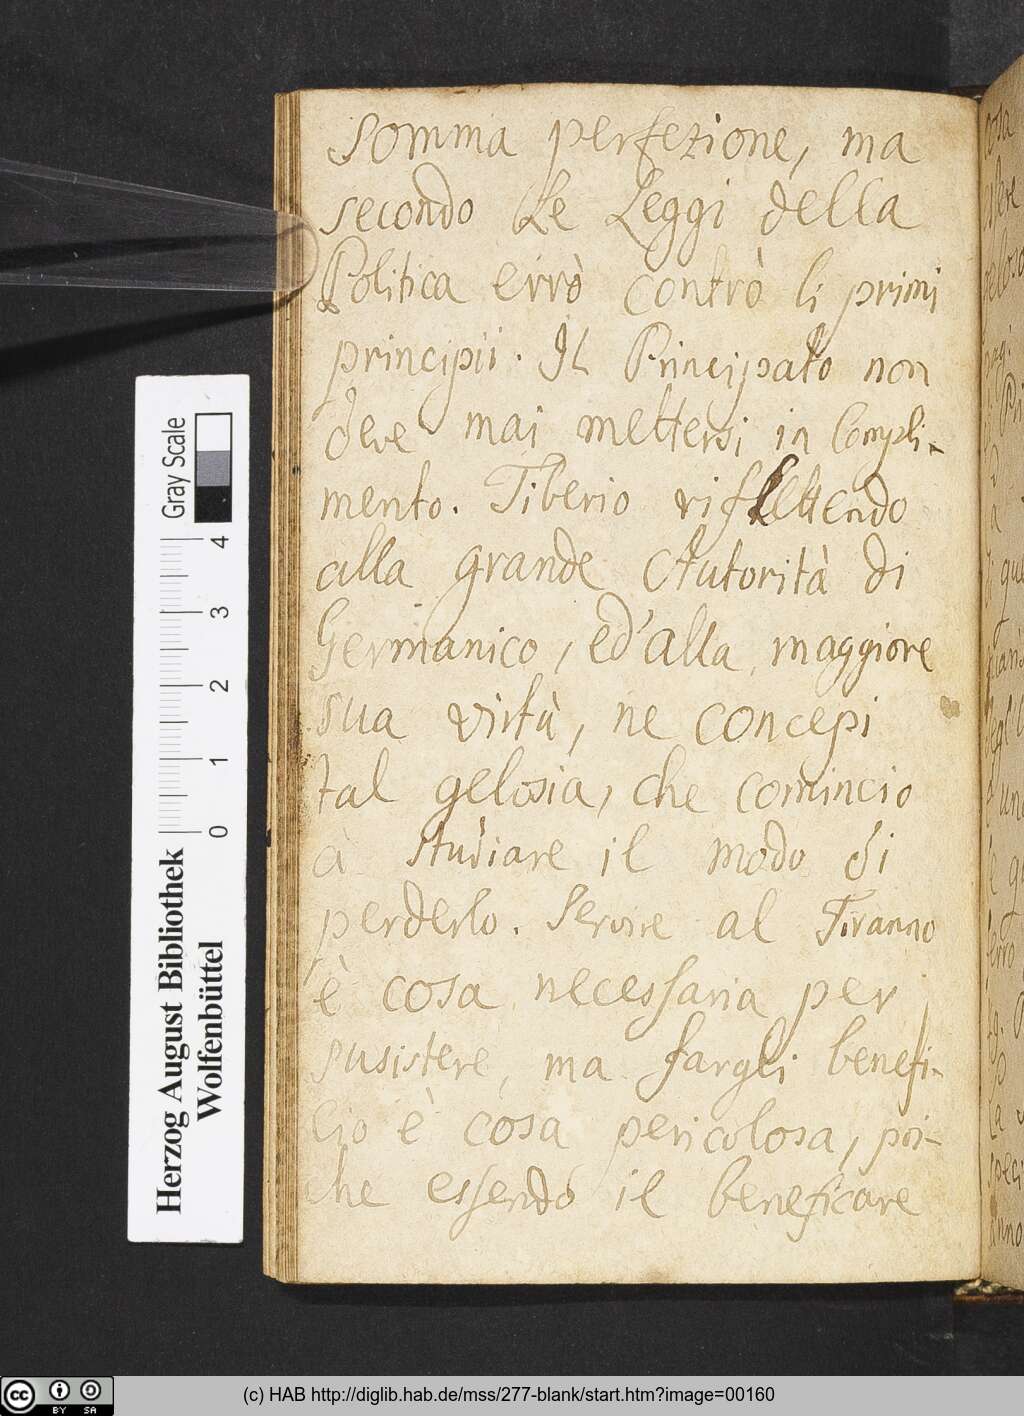 somma perfezione, ma
secondo Le Leggi della
Politica errò contrò li primi
principii. Il Principato non
deve mai mettersi in Compli-
mento. Tiberio riflettendo
alla grande Autorità di
Germanico, ed'alla maggiore
sua virtù, ne concepi
tal gelosia, che comincio
a studiare il modo di
perderlo. Servire al Tiranno
è cosa necessaria per
susistere, ma fargli benefi-
cio è cosa pericolosa, poi-
che essendo il beneficare
Gray Scale
4
3
2
1
0
Herzog August Bibliothek
Wolfenbüttel
cc BY SA
(c) HAB http://diglib.hab.de/mss/277-blank/start.htm?image=00160